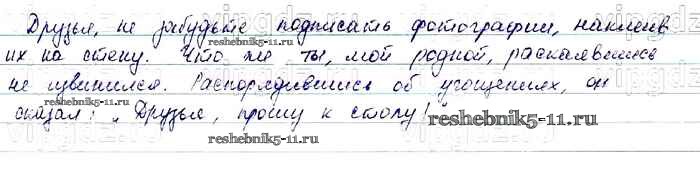 Друзья, не забудьте подписать фотографии, наклеив
их на стену. Что же ты, мой родной, раскаявшись
не извинился. Распорядившись об угощениях, он
сказал: „Друзья, прошу к столу!"
reshebnik5-11.ru
reshebnik5-11.ru
reshebnik5-11.ru